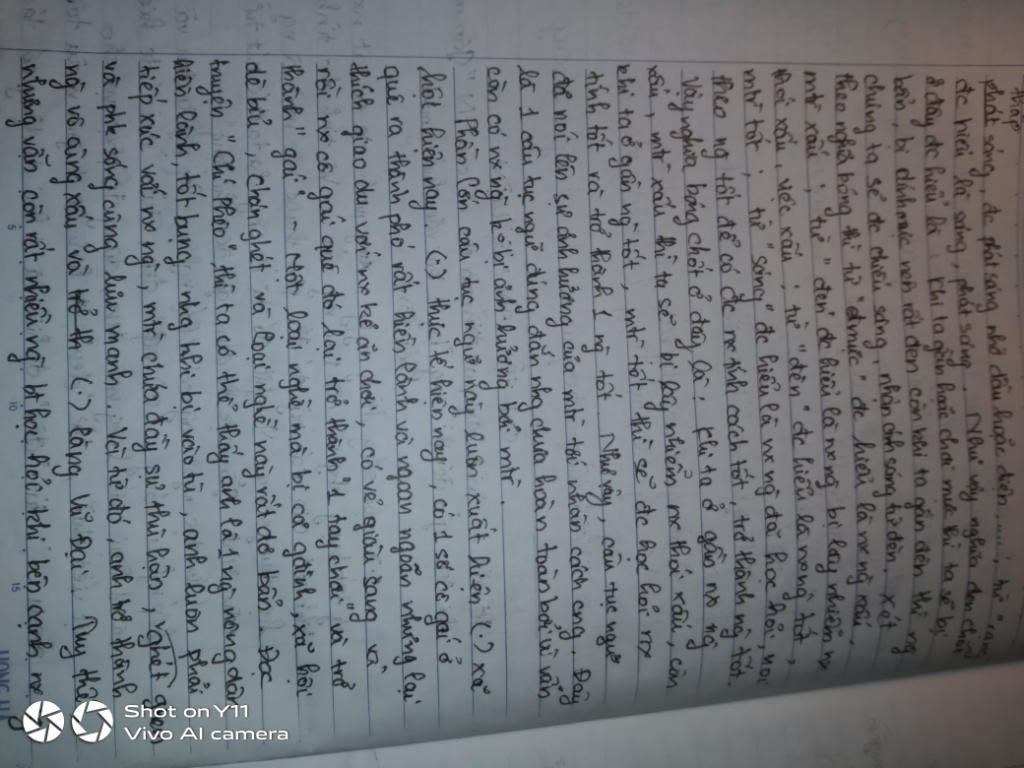 phát sáng, đc phát sáng nhờ dầu hoặc điện..., từ "rạng"
đc hiểu là sáng, phát sáng. Như vậy nghĩa đen chính
ở đây đc hiểu là khi ta gần hoặc chơi mực thì ta sẽ bị
bẩn, bị dính mực nên rất đen còn khi ta gần đèn thì
chúng ta sẽ đc chiếu sáng, nhận ánh sáng từ đèn. Xét
theo nghĩa bóng thì từ "mực" đc hiểu là ng xấu,
mtr xấu, từ "đen" đc hiểu là ng bị lây nhiễm
thói xấu, việc xấu, từ "đèn" đc hiểu là ng tốt,
mtr tốt, từ "sáng" đc hiểu là ng đã học hỏi, noi
theo ng tốt để có đc tính cách tốt, trở thành ng tốt.
Vậy nghĩa bóng chốt ở đây là: khi ta ở gần ng
xấu, mtr xấu thì ta sẽ bị lây nhiễm thói xấu, còn
khi ta ở gần ng tốt, mtr tốt thì sẽ đc học hỏi
tính tốt và trở thành 1 ng tốt. Như vậy, câu tục ngữ
đã nói lên sự ảnh hưởng của mtr tới nhân cách cng. Đây
là 1 câu tục ngữ đúng đắn nhg chưa hoàn toàn bởi vì vẫn
còn có ng ko bị ảnh hưởng bởi mtr.
Phần lớn câu tục ngữ này luôn xuất hiện (.) xã
hội hiện nay. (.) thực tế hiện nay, có 1 số cô gái ở
quê ra thành phố rất hiền lành và ngoan ngoãn nhưng lại
thích giao du với kẻ ăn chơi, có vẻ giàu sang và
rồi cô gái quê đó lại trở thành 1 tay chơi và trở
thành "gái" - Một loại nghề mà bị cả gia đình, xã hội
dè bỉu, chán ghét và loại nghề này rất dơ bẩn. Đọc
truyện "Chí Phèo" thì ta có thể thấy anh là 1 ng nông dân
hiền lành, tốt bụng nhưng khi bị vào tù, anh luôn phải
tiếp xúc với ng, mtr chứa đầy sự thù hận, ghét
và sống cũng lưu manh. Và từ đó, anh trở thành
ng vô cùng xấu và trở th (.) làng Vũ Đại. Tuy thế
nhưng vẫn còn rất nhiều ng bt học hỏi khi bên cạnh
Shot on Y11
Vivo AI camera